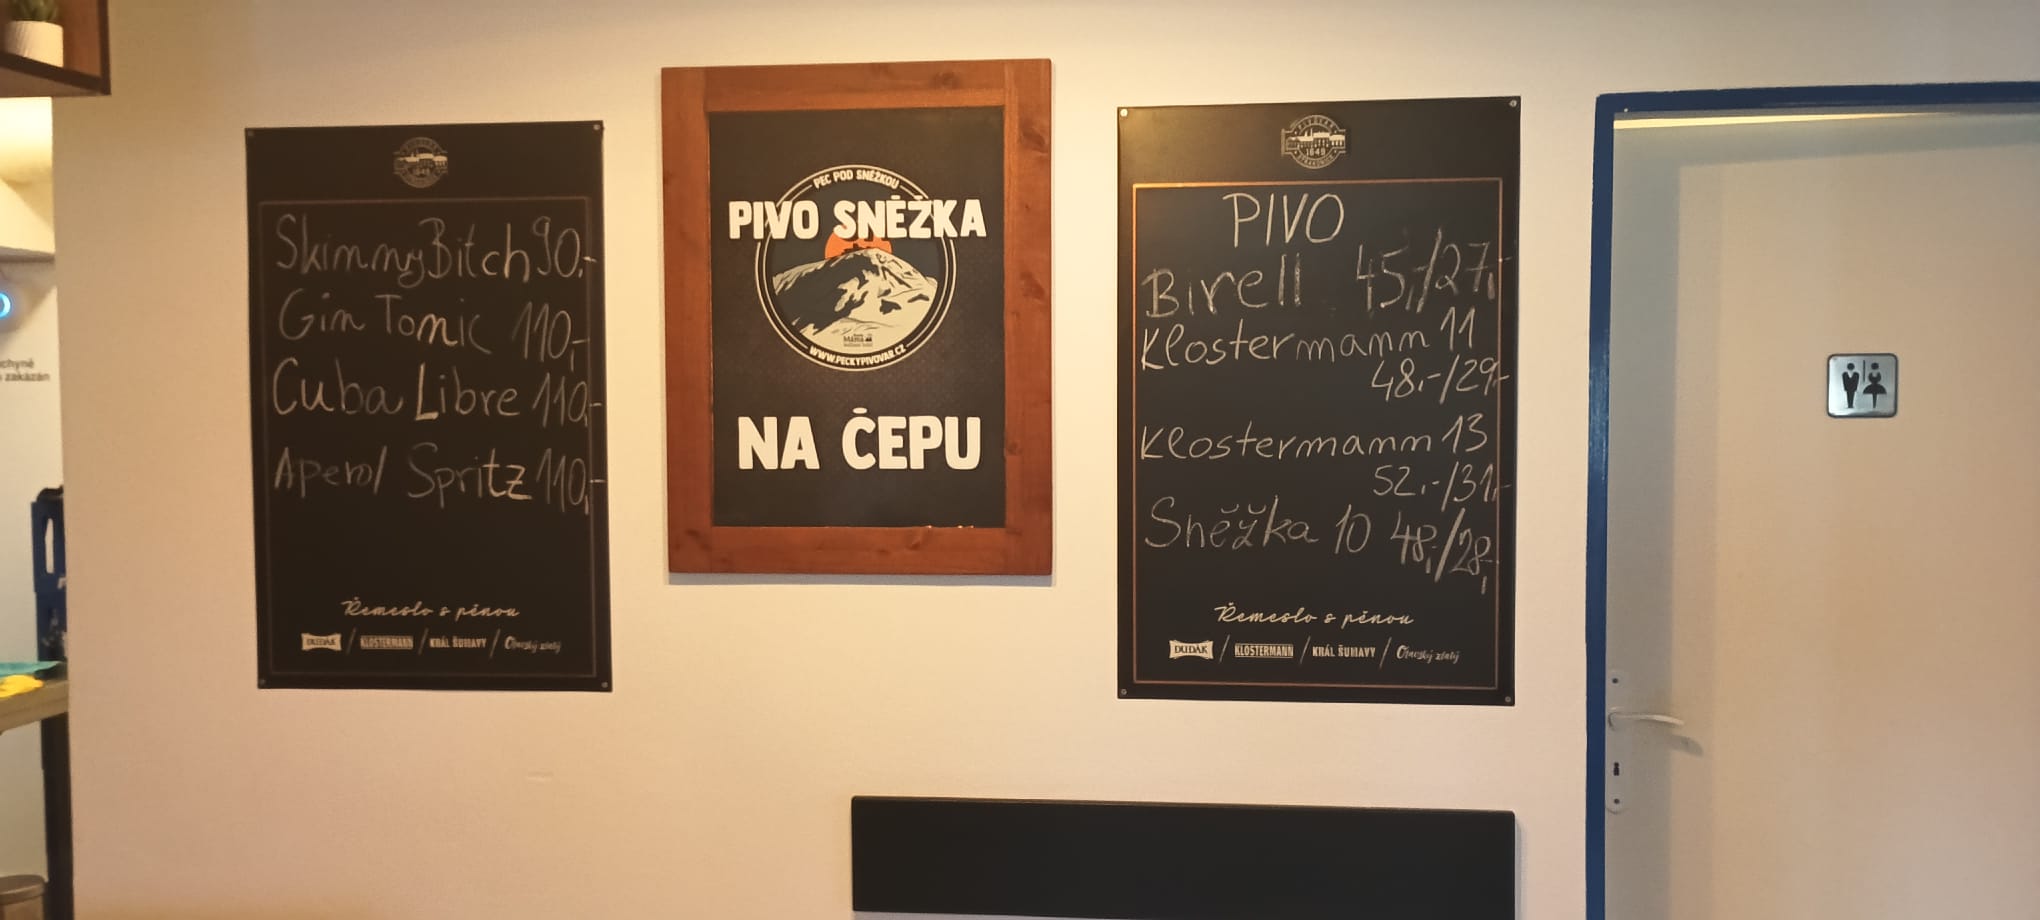 Skinny Bitch 90,-
Gin Tonic 110,-
Cuba Libre 110,-
Aperol Spritz 110,-
Řemeslo s pěnou
DUDÁK / KLOSTERMANN / KRÁL ŠUMAVY / Otavský zlatý
PEC POD SNĚŽKOU
PIVO SNĚŽKA
WWW.PECKYPIVOVAR.CZ
NA ČEPU
PIVOVAR
1649
STRAKONICE
PIVO
Birell 45,-/27,-
Klostermann 11
48,-/29,-
Klostermann 13
52,-/31,-
Sněžka 10 48,-/28,-
Řemeslo s pěnou
DUDÁK / KLOSTERMANN / KRÁL ŠUMAVY / Otavský zlatý
zakázán